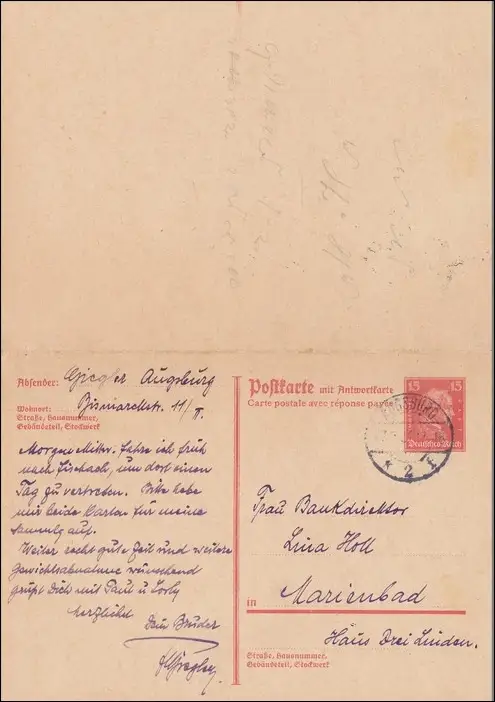 Absender: Giegler Augsburg
Wohnort: Bismarckstr. 11/II.
Straße, Hausnummer,
Gebäudeteil, Stockwerk
Morgen Mittw. fahre ich früh
nach um dort einen
Tag zu vertreten. Bitte hebe
mir beide Karten für meine
Sammlg auf.
Weiter recht gute Zeit und weitere
Gewichtsabnahme wünschend
grüßt Dich mit Paul u.
herzlichst
Dein Bruder
Giegler
Postkarte mit Antwortkarte
Carte postale avec réponse payée
15 15
Deutsches Reich
AUGSBURG
* 2
Frau Bankdirektor
Holl
in Marienbad
Haus Drei Linden.
Straße, Hausnummer,
Gebäudeteil, Stockwerk